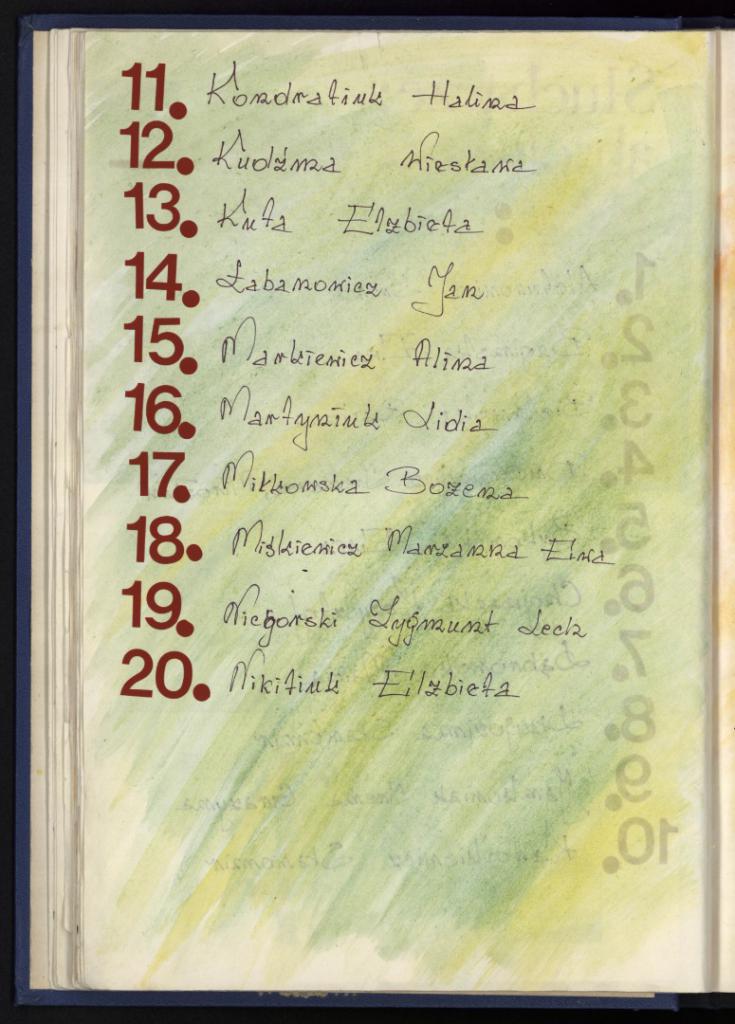 11. Kondratiuk Halina
12. Kudźma Wiesława
13. Kuta Elżbieta
14. Łabanowicz Jan
15. Markiewicz Alina
16. Martyniuk Lidia
17. Bożena
18. Miśkiewicz Marzanna Ewa
19. Niegorski Zygmunt Lech
20. Nikitiuk Elżbieta